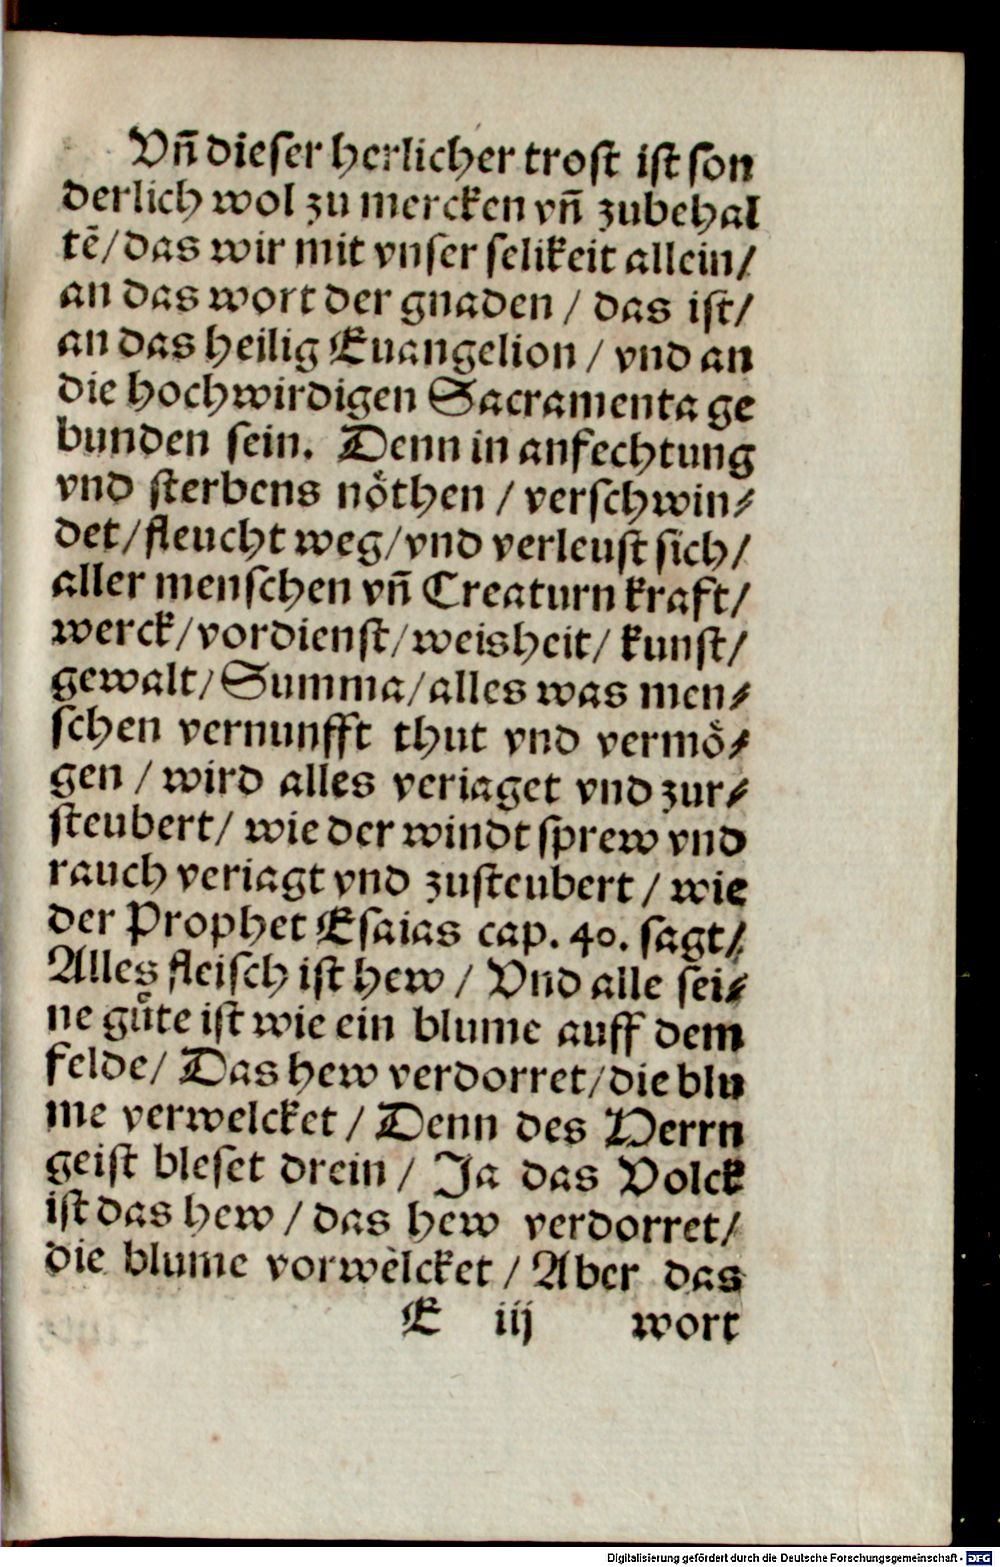 Vñ dieser herlicher trost ist son
derlich wol zu mercken vñ zubehal
tē/das wir mit vnser selikeit allein/
an das wort der gnaden / das ist/
an das heilig Euangelion / vnd an
die hochwirdigen Sacramenta ge
bunden sein. Denn in anfechtung
vnd sterbens nöthen / verschwin⸗
det/fleucht weg/vnd verleust sich/
aller menschen vñ Creaturn kraft/
werck/vordienst/weisheit/ kunst/
gewalt/Summa/alles was men⸗
schen vernunfft thut vnd vermö⸗
gen / wird alles veriaget vnd zur⸗
steubert/ wie der windt sprew vnd
rauch veriagt vnd zusteubert / wie
der Prophet Esaias cap. 40. sagt/
Alles fleisch ist hew / Vnd alle sei⸗
ne guͤte ist wie ein blume auff dem
felde/ Das hew verdorret/die blu
me verwelcket / Denn des Herrn
geist bleset drein / Ja das Volck
ist das hew / das hew verdorret/
die blume vorwelcket / Aber das
E iij wort
Digitalisierung gefördert durch die Deutsche Forschungsgemeinschaft - DFG